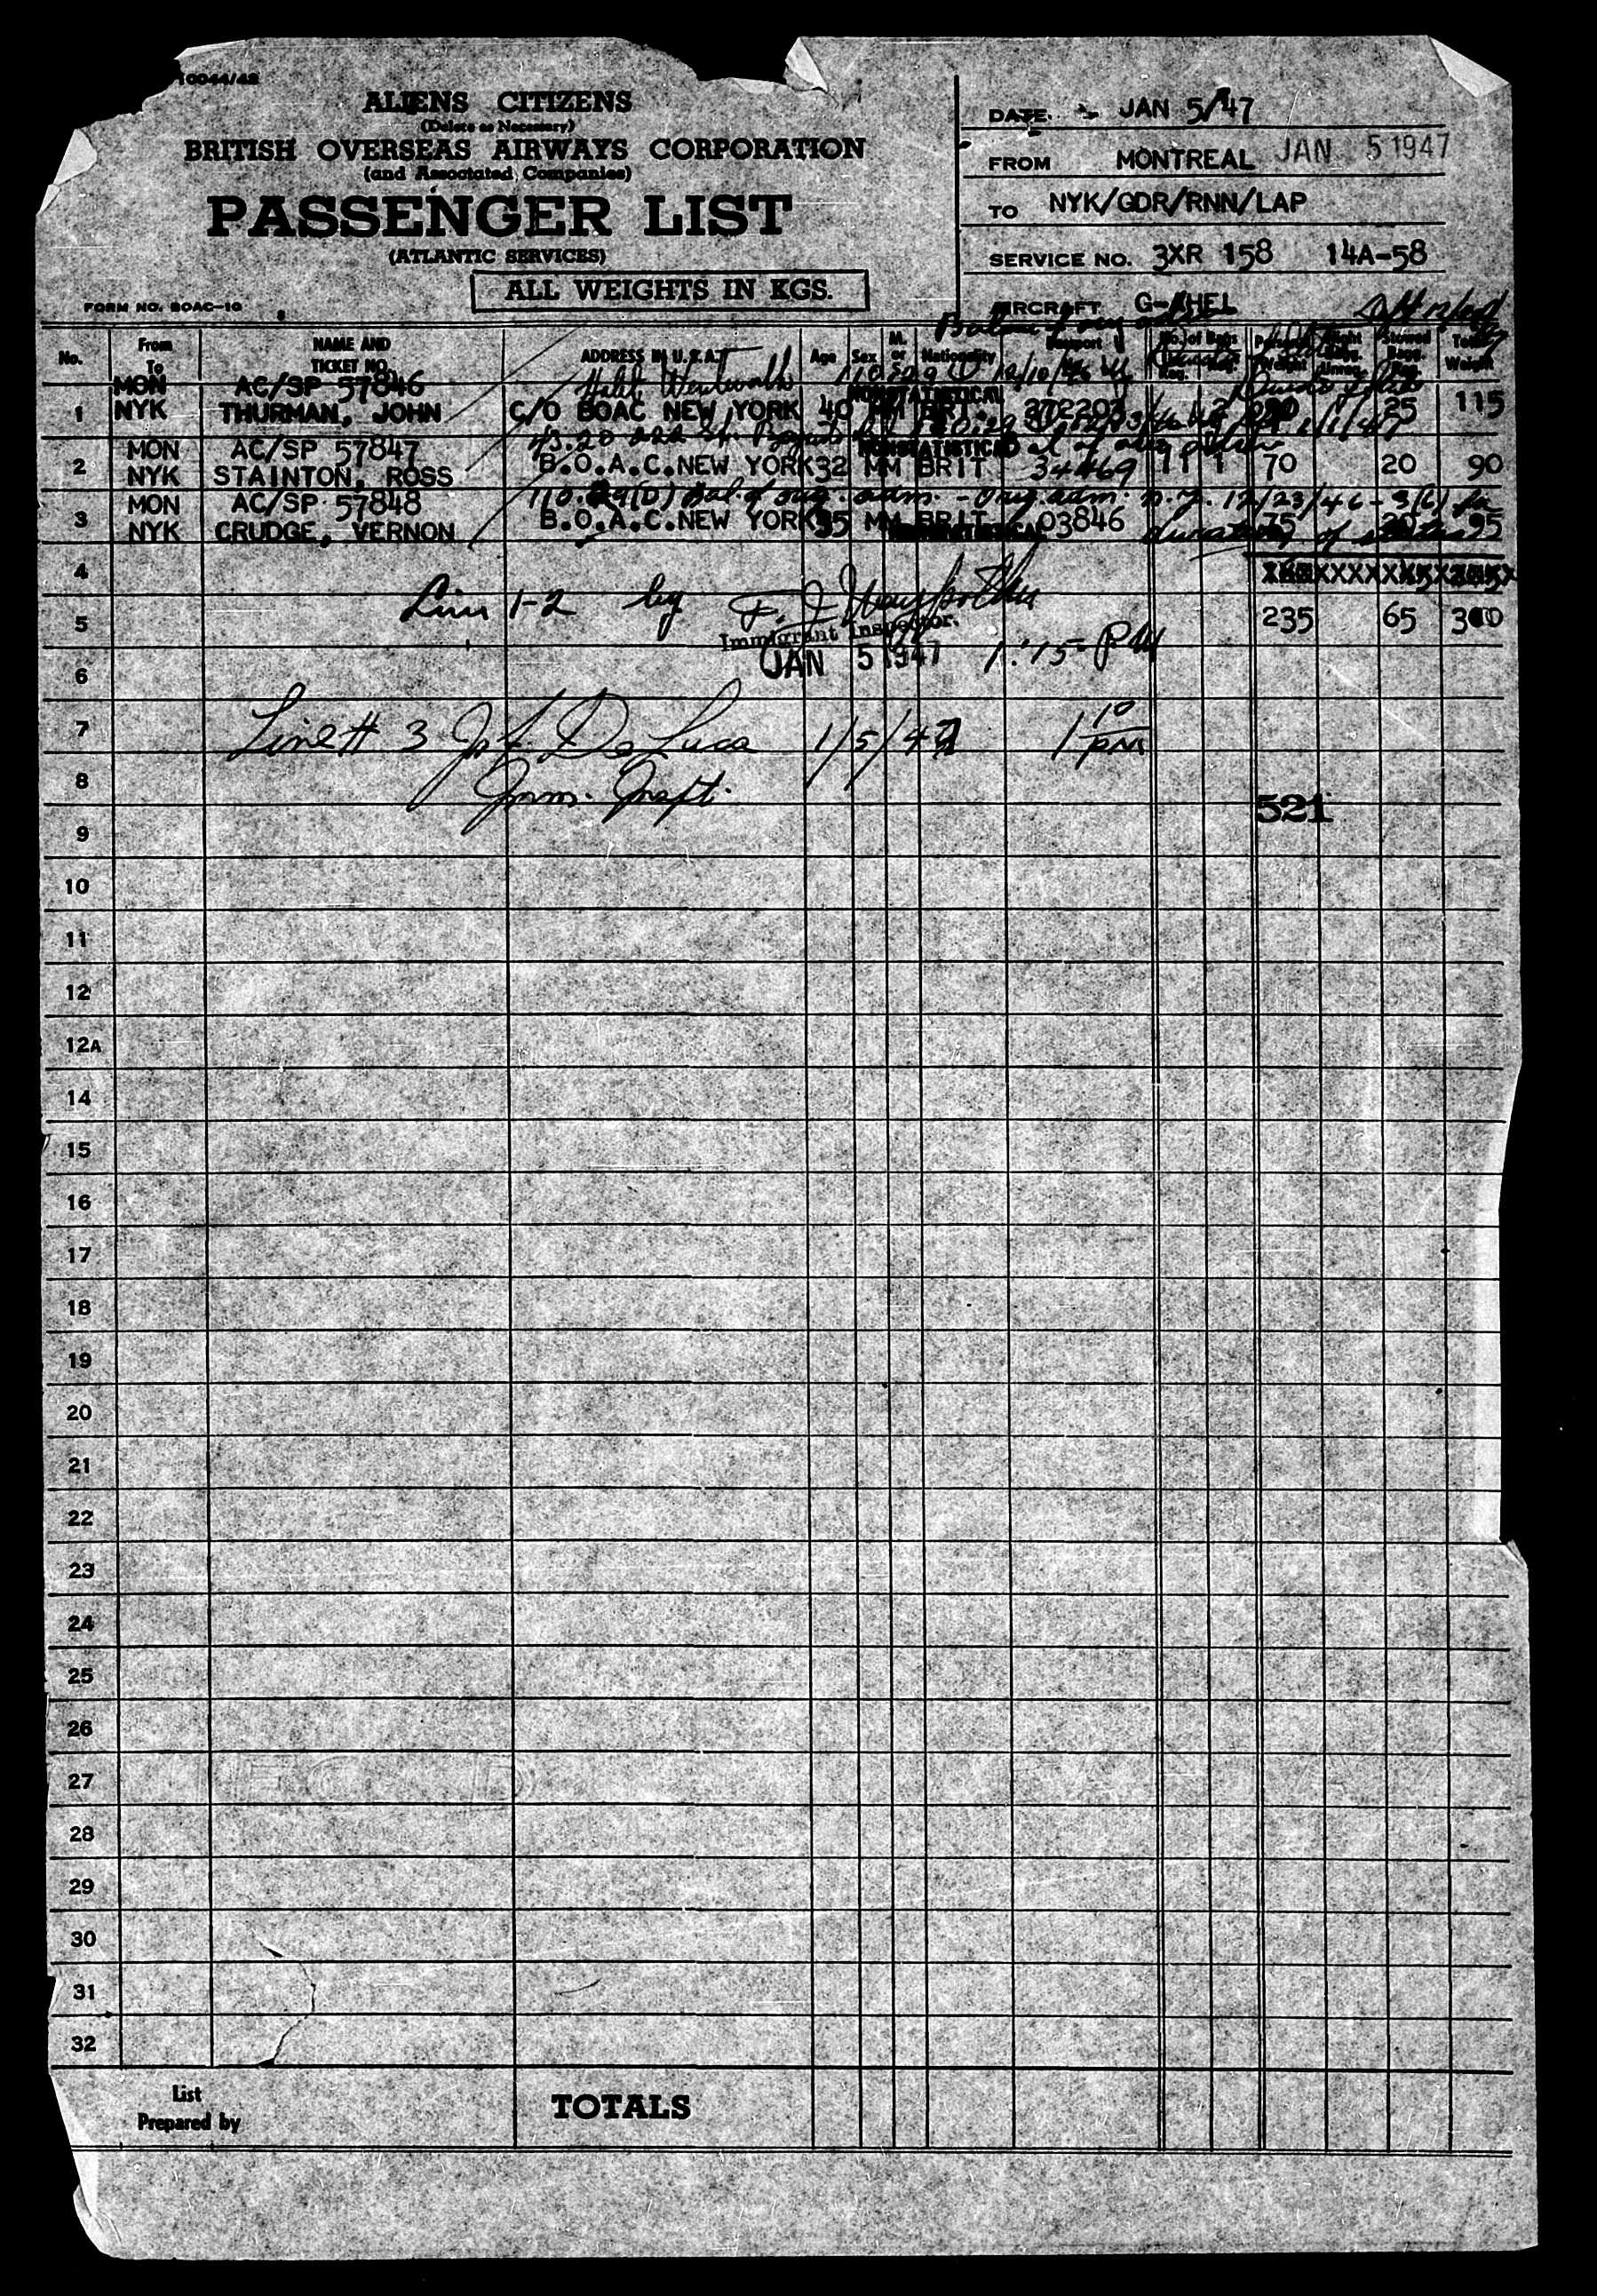 10044/42
ALIENS CITIZENS
(Delete as Necessary)
BRITISH OVERSEAS AIRWAYS CORPORATION
(and Associated Companies)
PASSENGER LIST
(ATLANTIC SERVICES)
ALL WEIGHTS IN KGS.
FORM NO. BOAC-10
DATE. JAN 5/47
FROM MONTREAL JAN 5 1947
TO NYK/GDR/RNN/LAP
SERVICE NO. 3XR 158 14A-58
AIRCRAFT HEL
No. From To NAME AND TICKET NO. ADDRESS IN U.S.A. Age Sex M. or Nationality Passport No. of Bags Personal Weight Stowed Bagg. Reg. Total Weight
Hotel Wentworth 12/10/46
MON AC/SP 57846 NONSTATISTICAL
1 NYK THURMAN, JOHN C/O BOAC NEW YORK 40 M M BRIT. 2 25 115
MON AC/SP 57847 NONSTATISTICAL
2 NYK STAINTON, ROSS B.O.A.C. NEW YORK 32 M M BRIT. 34469 1 1 70 20 90
MON AC/SP 57848 110.29(D) Bal. of orig. adm. - Orig. adm. N.Y. 12/23/46 - 3(6) for
3 NYK CRUDGE, VERNON B.O.A.C. NEW YORK 35 M M BRIT 03846 duration of status 75 20 95
NONSTATISTICAL
4
5 235 65 300
Line 1-2 by F. J.
Immigrant Inspector.
JAN 5 1947 1:15 PM
6
7 Line # 3 De Luca 1/5/47 1 10 PM
8 Imm. Inspt.
521
9
10
11
12
12A
14
15
16
17
18
19
20
21
22
23
24
25
26
27
28
29
30
31
32
List Prepared by TOTALS